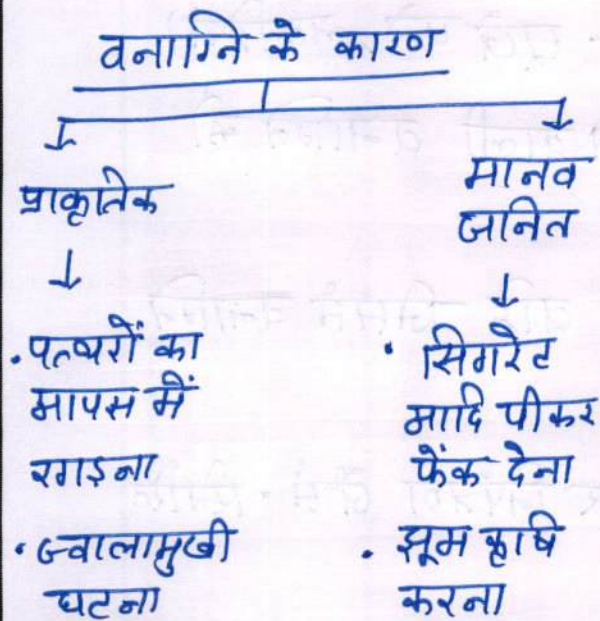 वनाग्नि के कारण
प्राकृतिक
• पत्थरों का
आपस में
रगड़ना
• ज्वालामुखी
घटना
मानव
जनित
• सिगरेट
आदि पीकर
फेंक देना
• झूम कृषि
करना